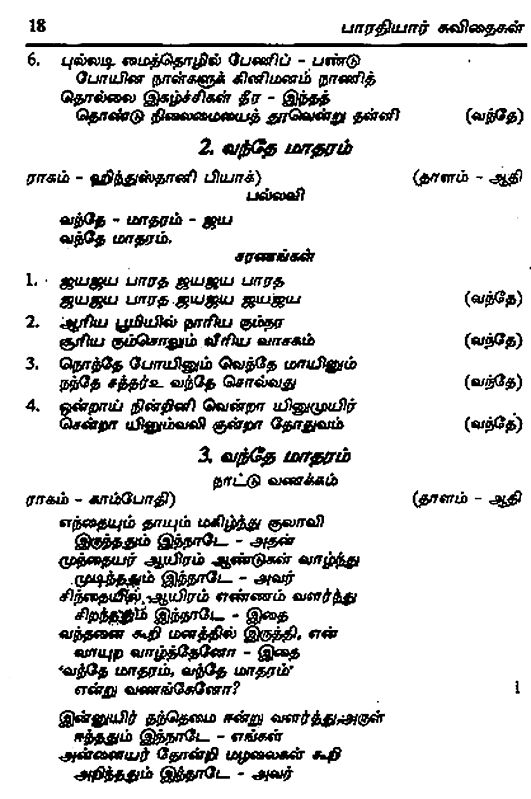 18 பாரதியார் கவிதைகள்
6. புல்லடி மைத்தொழில் பேணிப் - பண்டு
போயின நாள்களுக் கினிமனம் நாணித்
தொல்லை இகழ்ச்சிகள் தீர - இந்தத்
தொண்டு நிலைமையைத் தூவென்று தள்ளி (வந்தே)
2. வந்தே மாதரம்
ராகம் - ஹிந்துஸ்தானி பியாக்) (தாளம் - ஆதி
பல்லவி
வந்தே - மாதரம் - ஜய
வந்தே மாதரம்.
சரணங்கள்
1. ஜயஜய பாரத ஜயஜய பாரத
ஜயஜய பாரத ஜயஜய ஜயஜய (வந்தே)
2. ஆரிய பூமியில் நாரிய ரும்நர
சூரிய ரும்சொலும் வீரிய வாசகம் (வந்தே)
3. நொந்தே போயினும் வெந்தே மாயினும்
நந்தே சத்தர்உ வந்தே சொல்வது (வந்தே)
4. ஒன்றாய் நின்றினி வென்றா யினுமுயிர்
சென்றா யினும்வலி குன்றா தோதுவம் (வந்தே)
3. வந்தே மாதரம்
நாட்டு வணக்கம்
ராகம் - காம்போதி) (தாளம் - ஆதி
எந்தையும் தாயும் மகிழ்ந்து குலாவி
இருந்ததும் இந்நாடே - அதன்
முந்தையர் ஆயிரம் ஆண்டுகள் வாழ்ந்து
முடிந்ததும் இந்நாடே - அவர்
சிந்தையில் ஆயிரம் எண்ணம் வளர்ந்து
சிறந்ததும் இந்நாடே - இதை
வந்தனை கூறி மனத்தில் இருத்தி, என்
வாயுற வாழ்த்தேனோ - இதை
'வந்தே மாதரம், வந்தே மாதரம்'
என்று வணங்கேனோ? 1
இன்னுயிர் தந்தெமை ஈன்று வளர்த்து,அருள்
ஈந்ததும் இந்நாடே - எங்கள்
அன்னையர் தோன்றி மழலைகள் கூறி
அறிந்ததும் இந்நாடே - அவர்